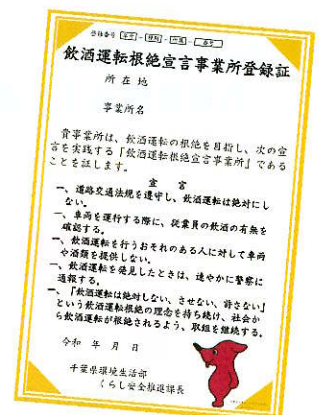 登録番号
飲酒運転根絶宣言事業所登録証
所在地
事業所名
貴事業所は、飲酒運転の根絶を目指し、次の宣
言を実践する「飲酒運転根絶宣言事業所」である
ことを証します。
宣言
一、道路交通法規を遵守し、飲酒運転は絶対にし
ない。
一、車両を運行する際に、従業員の飲酒の有無を
確認する。
一、飲酒運転を行うおそれのある人に対して車両
や酒類を提供しない。
一、飲酒運転を発見したときは、速やかに警察に
通報する。
一、「飲酒運転は絶対しない、させない、許さない」
という飲酒運転根絶の理念を持ち続け、社会か
ら飲酒運転が根絶されるよう、取組を継続する。
令和 年 月 日
千葉県環境生活部
くらし安全推進課長